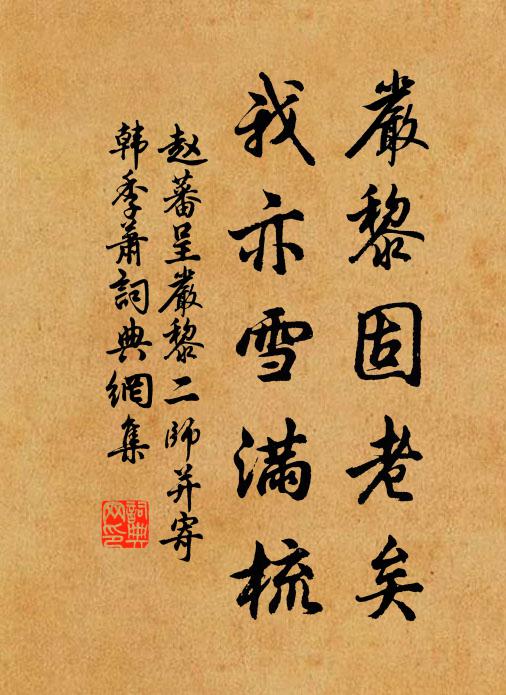 嚴黎固老矣
我亦雪滿梳
赵蕃呈嚴黎二師并寄
韩季蕭詞典網集
詞典
网印